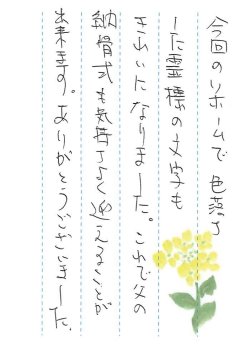 今回のリホームで 色落ち
した霊標の文字も
きれいになりました。これで父の
納骨式も気持ちよく迎えることが
出来ます。ありがとうございました。